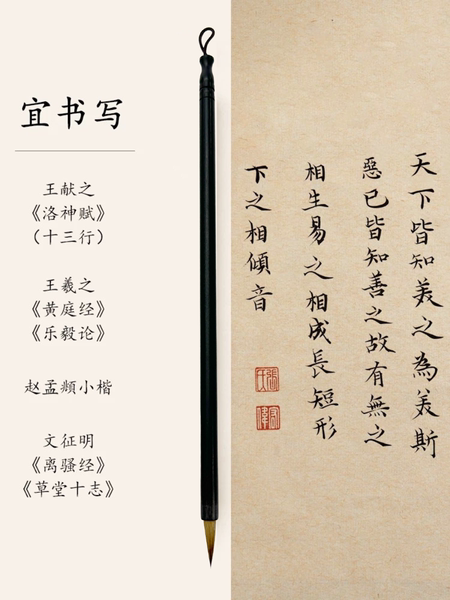 宜书写
王献之
《洛神赋》
（十三行）
王羲之
《黄庭经》
《乐毅论》
赵孟頫小楷
文征明
《离骚经》
《草堂十志》
天下皆知美之為美斯
惡已皆知善之故有無之
相生易之相成長短形
下之相傾音